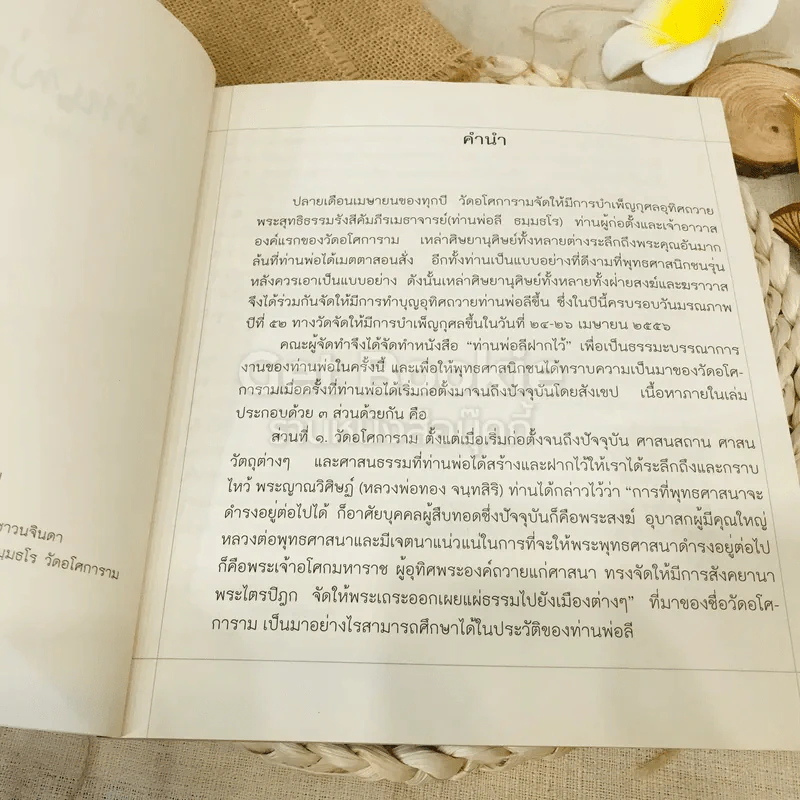 ราวนจินดา
มฺมธโร วัดอโศการาม
คำนำ
ปลายเดือนเมษายนของทุกปี วัดอโศการามจัดให้มีการบำเพ็ญกุศลอุทิศถวาย
พระสุทธิธรรมรังสีคัมภีรเมธาจารย์(ท่านพ่อลี ธมฺมธโร) ท่านผู้ก่อตั้งและเจ้าอาวาส
องค์แรกของวัดอโศการาม เหล่าศิษยานุศิษย์ทั้งหลายต่างระลึกถึงพระคุณอันมาก
ล้นที่ท่านพ่อได้เมตตาสอนสั่ง อีกทั้งท่านเป็นแบบอย่างที่ดีงามที่พุทธศาสนิกชนรุ่น
หลังควรเอาเป็นแบบอย่าง ดังนั้นเหล่าศิษยานุศิษย์ทั้งหลายทั้งฝ่ายสงฆ์และฆราวาส
จึงได้ร่วมกันจัดให้มีการทำบุญอุทิศถวายท่านพ่อลีขึ้น ซึ่งในปีนี้ครบรอบวันมรณภาพ
ปีที่ ๕๒ ทางวัดจัดให้มีการบำเพ็ญกุศลขึ้นในวันที่ ๒๔-๒๖ เมษายน ๒๕๕๖
คณะผู้จัดทำจึงได้จัดทำหนังสือ “ท่านพ่อลีฝากไว้” เพื่อเป็นธรรมะบรรณาการ
งานของท่านพ่อในครั้งนี้ และเพื่อให้พุทธศาสนิกชนได้ทราบความเป็นมาของวัดอโศ-
การามเมื่อครั้งที่ท่านพ่อได้เริ่มก่อตั้งมาจนถึงปัจจุบันโดยสังเขป เนื้อหาภายในเล่ม
ประกอบด้วย ๓ ส่วนด้วยกัน คือ
ส่วนที่ ๑. วัดอโศการาม ตั้งแต่เมื่อเริ่มก่อตั้งจนถึงปัจจุบัน ศาสนสถาน ศาสน
วัตถุต่างๆ และศาสนธรรมที่ท่านพ่อได้สร้างและฝากไว้ให้เราได้ระลึกถึงและกราบ
ไหว้ พระญาณวิศิษฏ์ (หลวงพ่อทอง จนฺทสิริ) ท่านได้กล่าวไว้ว่า “การที่พุทธศาสนาจะ
ดำรงอยู่ต่อไปได้ ก็อาศัยบุคคลผู้สืบทอดซึ่งปัจจุบันก็คือพระสงฆ์ อุบาสกผู้มีคุณใหญ่
หลวงต่อพุทธศาสนาและมีเจตนาแน่วแน่ในการที่จะให้พระพุทธศาสนาดำรงอยู่ต่อไป
ก็คือพระเจ้าอโศกมหาราช ผู้อุทิศพระองค์ถวายแก่ศาสนา ทรงจัดให้มีการสังคยานา
พระไตรปิฎก จัดให้พระเถระออกเผยแผ่ธรรมไปยังเมืองต่างๆ” ที่มาของชื่อวัดอโศ-
การาม เป็นมาอย่างไรสามารถศึกษาได้ในประวัติของท่านพ่อลี